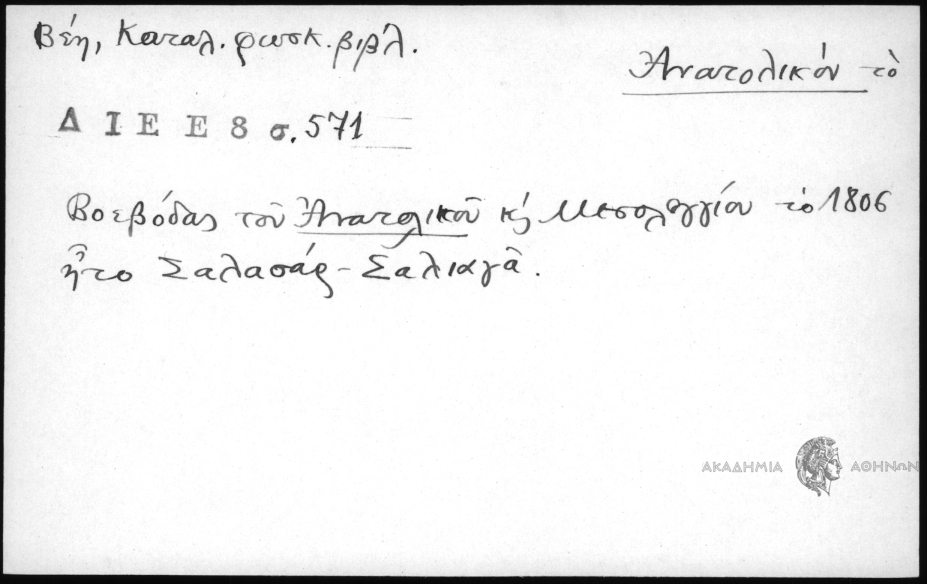 Βέη, Καταλ. φωσκ. βιβλ.
Ἀνατολικόν τὸ
Δ Ι Ε Ε 8 σ. 571
Βοεβόδας τοῦ Ἀνατολικοῦ κ' Μεσολογγίου τὸ 1806
ἦτο Σαλασάρ-Σαλιαγᾶ.
ΑΚΑΔΗΜΙΑ ΑΘΗΝΩΝ